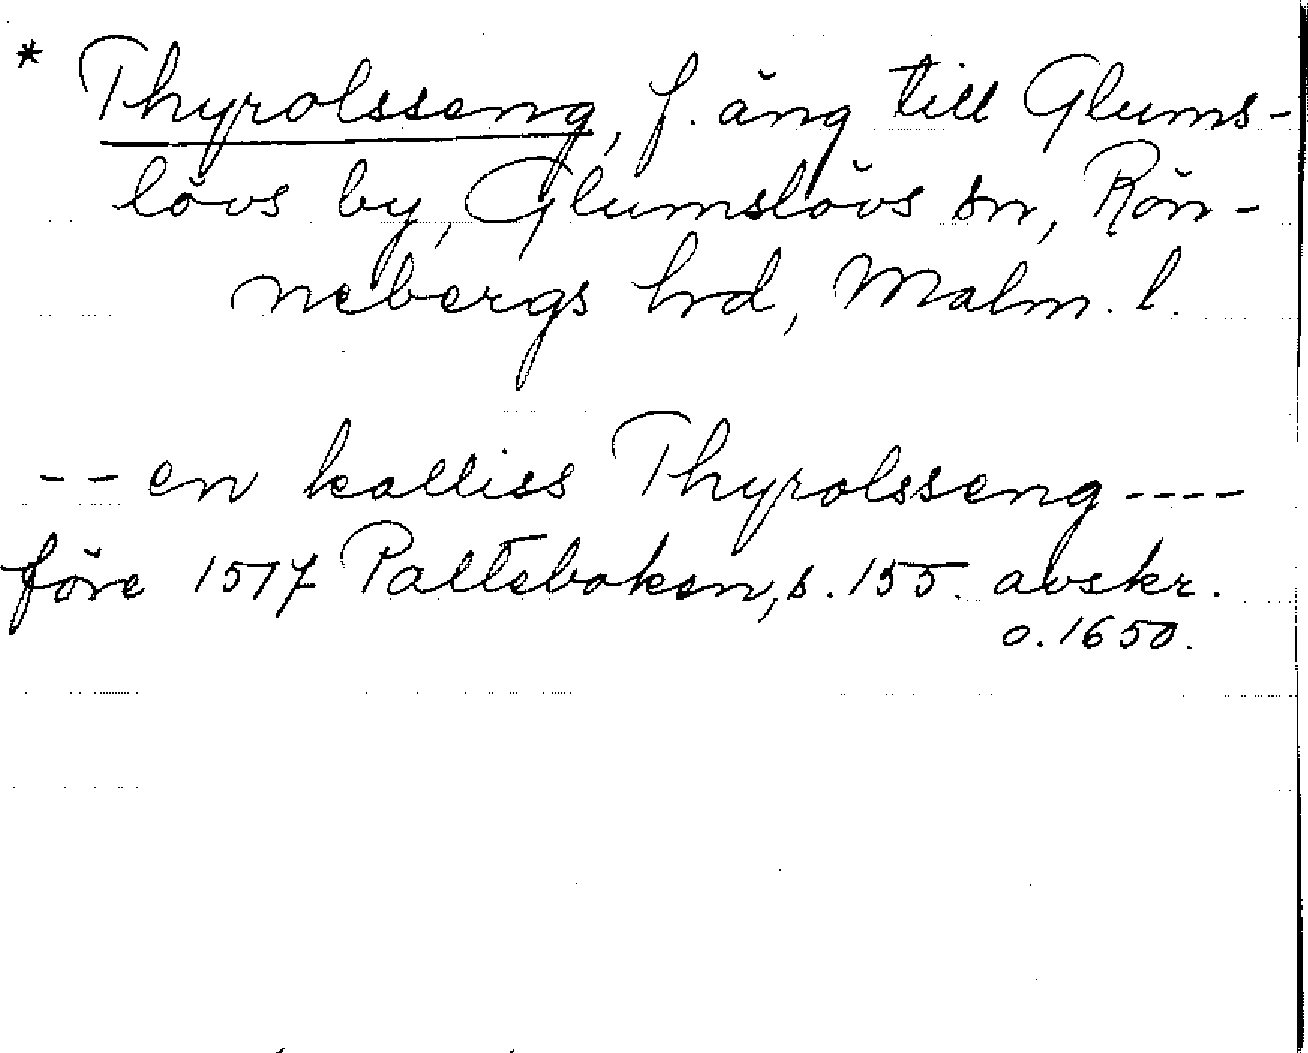 * Thyrolsseng, f. äng till Glums-
lövs by, Glumslövs sn, Rön-
nebergs hrd, Malm. l.
-- en kalliss Thyrolsseng ----
före 1517 Palteboken, s. 155. avskr.
o. 1650.